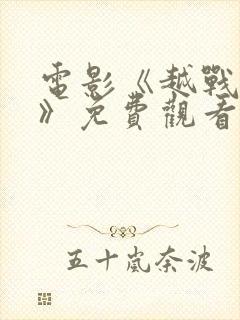 電影《越戰
》免費觀看
五十嵐奈波